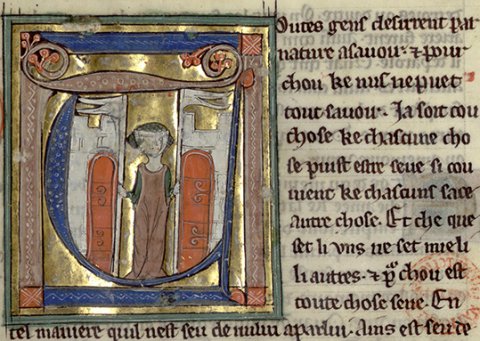 Toutes gens desirrent par
nature asauoir · ⁊ pour
chou ke nus ne puet
tout sauoir · Ja soit cou
chose ke chascune cho
se puist estre seue si cou
uient ke chascuns sace
autre chose. Et che que
set li vns ne set mie li
li autres · ⁊ pͦ chou est
toute chose seue. En
tel maniere quil nest seu de nului aparlui. Ains est seu de